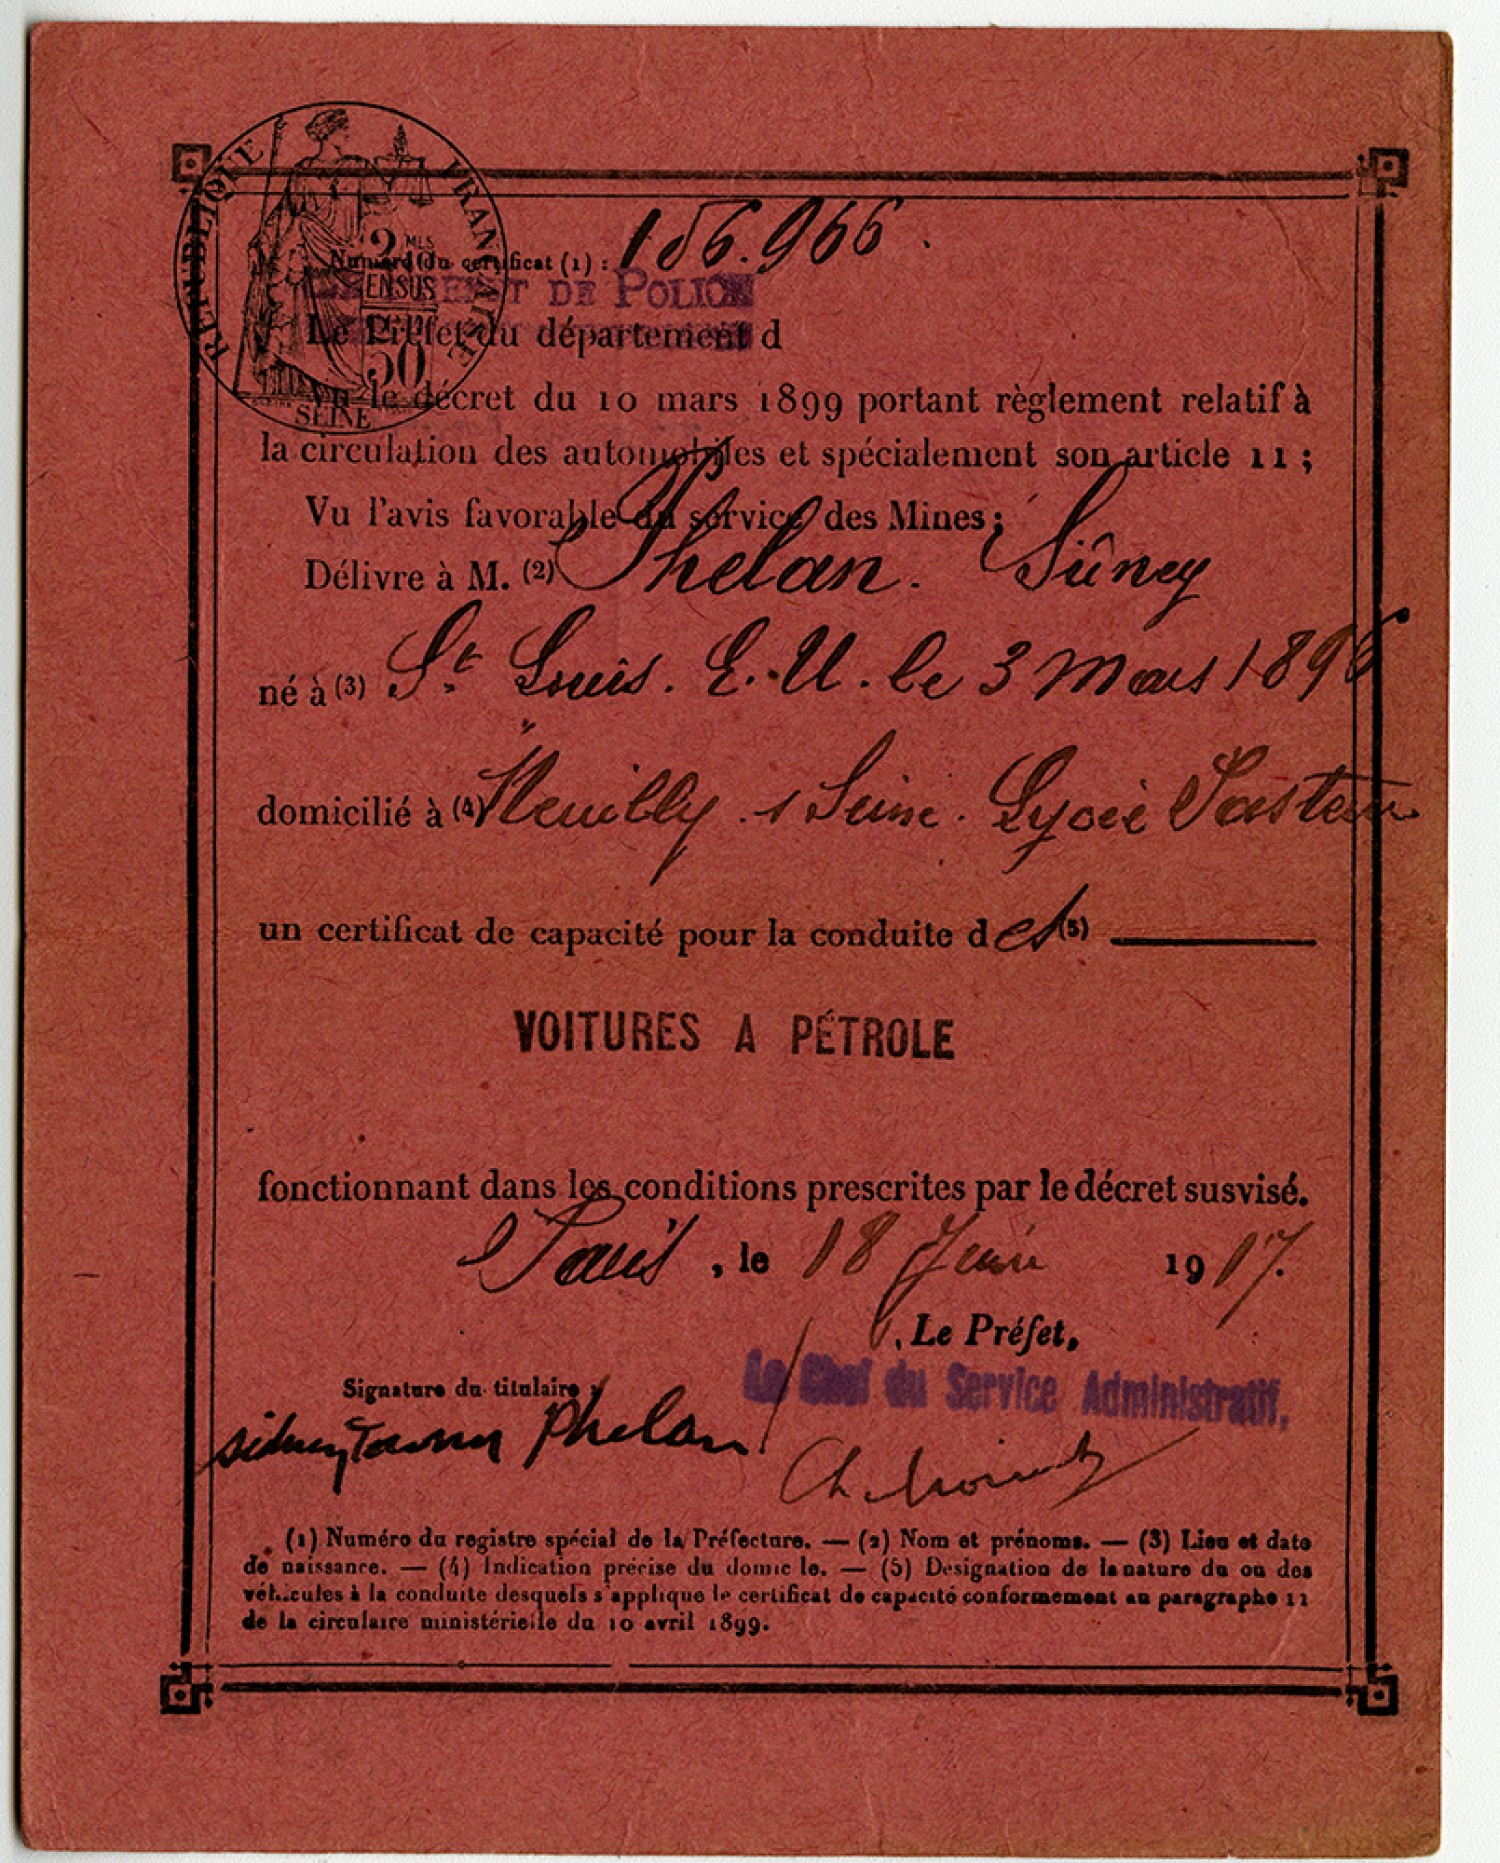 RÉPUBLIQUE FRANÇAISE
2 MLS
EN SUS
50
SEINE
Numéro du certificat (1) : 156.966.
PRÉFET DE POLICE
Le Préfet du département d
Vu le décret du 10 mars 1899 portant règlement relatif à
la circulation des automobiles et spécialement son article 11 ;
Vu l'avis favorable du service des Mines ;
Délivre à M. (2) Phelan. Sidney
né à (3) St Louis. E. U. le 3 Mars 1896
domicilié à (4) Neuilly s/ Seine. Lycée Pasteur
un certificat de capacité pour la conduite des (5)
VOITURES A PÉTROLE
fonctionnant dans les conditions prescrites par le décret susvisé.
Paris, le 18 Juin 1917.
Le Préfet,
Le Chef du Service Administratif,
Signature du titulaire :
Sidney Towner Phelan
(1) Numéro du registre spécial de la Préfecture. — (2) Nom et prénoms. — (3) Lieu et date
de naissance. — (4) Indication précise du domicile. — (5) Designation de la nature du ou des
véhicules à la conduite desquels s'applique le certificat de capacité conformement au paragraphe 11
de la circulaire ministérielle du 10 avril 1899.